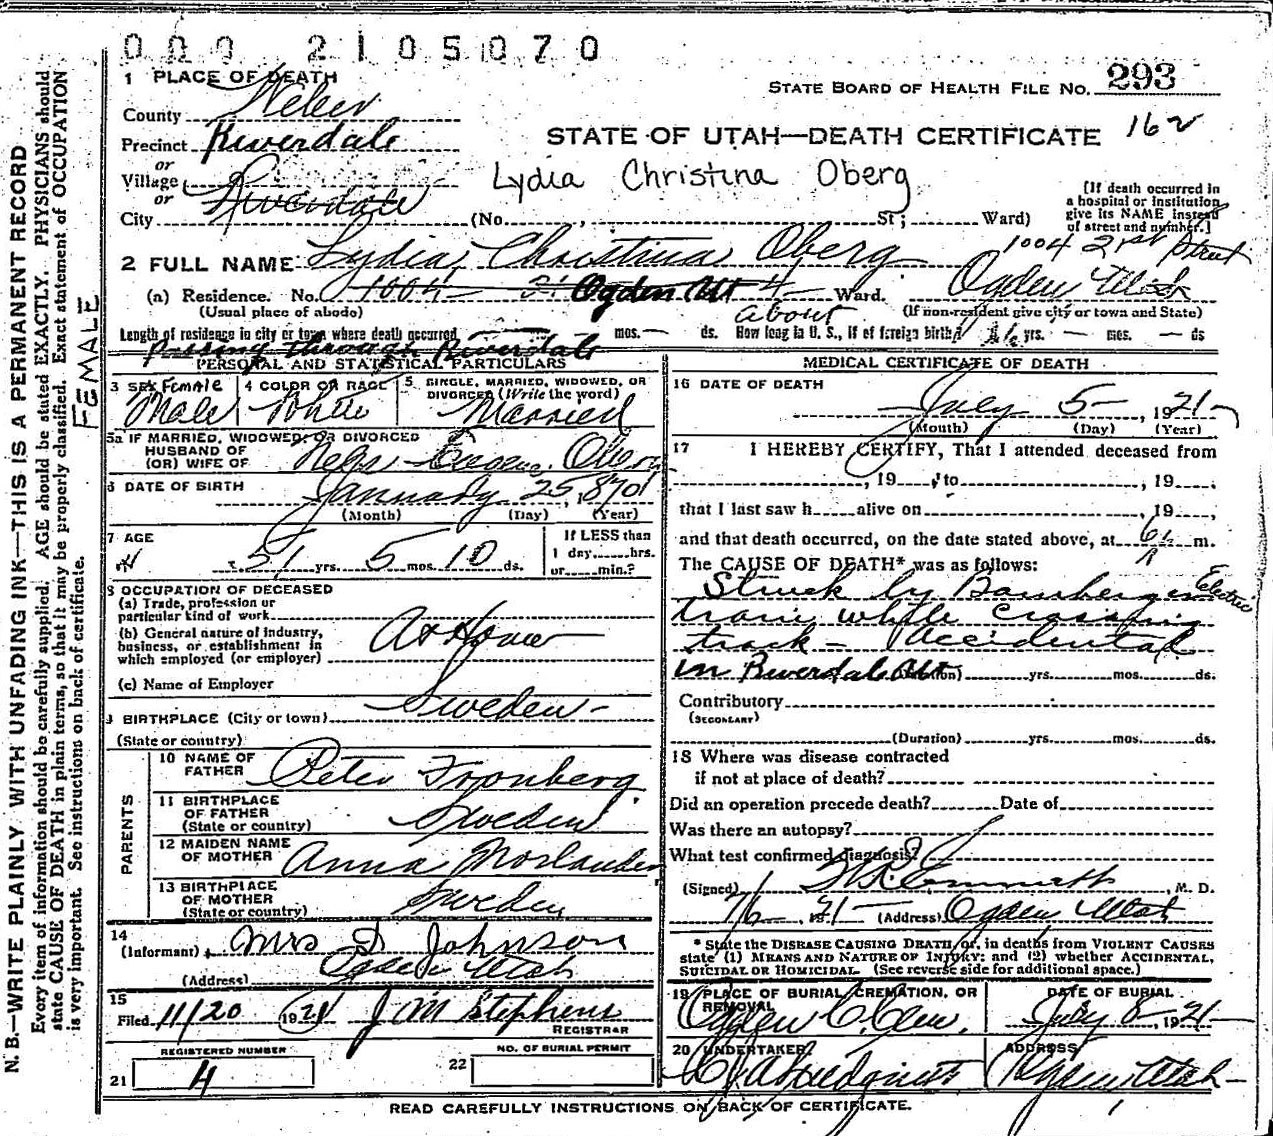 000 2105070
1 PLACE OF DEATH
STATE BOARD OF HEALTH FILE NO. 293
County Weber
Precinct Riverdale
STATE OF UTAH—DEATH CERTIFICATE 162
or
Village
or
City Riverdale
Lydia Christina Oberg
(No. , St; Ward)
[If death occurred in
a hospital or institution
give its NAME instead
of street and number.]
2 FULL NAME Lydia Christina Oberg
1004 21st Street
Ogden Utah
(a) Residence. No. 1004 21 Ogden Ut 4 Ward.
(Usual place of abode)
(If non-resident give city or town and State)
Length of residence in city or town where death occurred mos. ds. How long in U. S., if of foreign birth? about yrs. mos. ds
Passing through Riverdale
PERSONAL AND STATISTICAL PARTICULARS
3 SEX Female Male
4 COLOR OR RACE White
5 SINGLE, MARRIED, WIDOWED, OR
DIVORCED (Write the word)
Married
5a IF MARRIED, WIDOWED, OR DIVORCED
HUSBAND OF
(OR) WIFE OF Oberg
6 DATE OF BIRTH
January 25, 1870
(Month) (Day) (Year)
7 AGE
51 yrs. 5 mos. 10 ds.
If LESS than
1 day, hrs.
or min.?
8 OCCUPATION OF DECEASED
(a) Trade, profession or
particular kind of work
(b) General nature of industry,
business, or establishment in
which employed (or employer)
At Home
(c) Name of Employer
9 BIRTHPLACE (City or town) Sweden
(State or country)
PARENTS
10 NAME OF
FATHER Peter Fronberg
11 BIRTHPLACE
OF FATHER
(State or country) Sweden
12 MAIDEN NAME
OF MOTHER Anna
13 BIRTHPLACE
OF MOTHER
(State or country) Sweden
14
(Informant) Mrs D Johnson
(Address) Ogden Utah
15
Filed 11/20 1921 J M Stephens
REGISTRAR
REGISTERED NUMBER
21 4
NO. OF BURIAL PERMIT
22
MEDICAL CERTIFICATE OF DEATH
16 DATE OF DEATH
July 5, 1921
(Month) (Day) (Year)
17 I HEREBY CERTIFY, That I attended deceased from
, 19 , to , 19 ,
that I last saw h alive on , 19 ,
and that death occurred, on the date stated above, at m.
The CAUSE OF DEATH* was as follows:
Struck by Bamberger Electric
train while crossing
track - Accidental
in Riverdale Ut (Duration) yrs. mos. ds.
Contributory
(SECONDARY)
(Duration) yrs. mos. ds.
18 Where was disease contracted
if not at place of death?
Did an operation precede death? Date of
Was there an autopsy?
What test confirmed diagnosis?
(Signed) , M. D.
7/6, 1921 (Address) Ogden Utah
* State the DISEASE CAUSING DEATH, or, in deaths from VIOLENT CAUSES
state (1) MEANS AND NATURE OF INJURY; and (2) whether ACCIDENTAL,
SUICIDAL OR HOMICIDAL. (See reverse side for additional space.)
19 PLACE OF BURIAL, CREMATION, OR
REMOVAL
Ogden C. Cem.
DATE OF BURIAL
July 8, 1921
20 UNDERTAKER
ADDRESS
Ogden Utah
READ CAREFULLY INSTRUCTIONS ON BACK OF CERTIFICATE.
N. B.—WRITE PLAINLY WITH UNFADING INK—THIS IS A PERMANENT RECORD
Every item of information should be carefully supplied. AGE should be stated EXACTLY. PHYSICIANS should
state CAUSE OF DEATH in plain terms, so that it may be properly classified. Exact statement of OCCUPATION
is very important. See instructions on back of certificate.
FEMALE